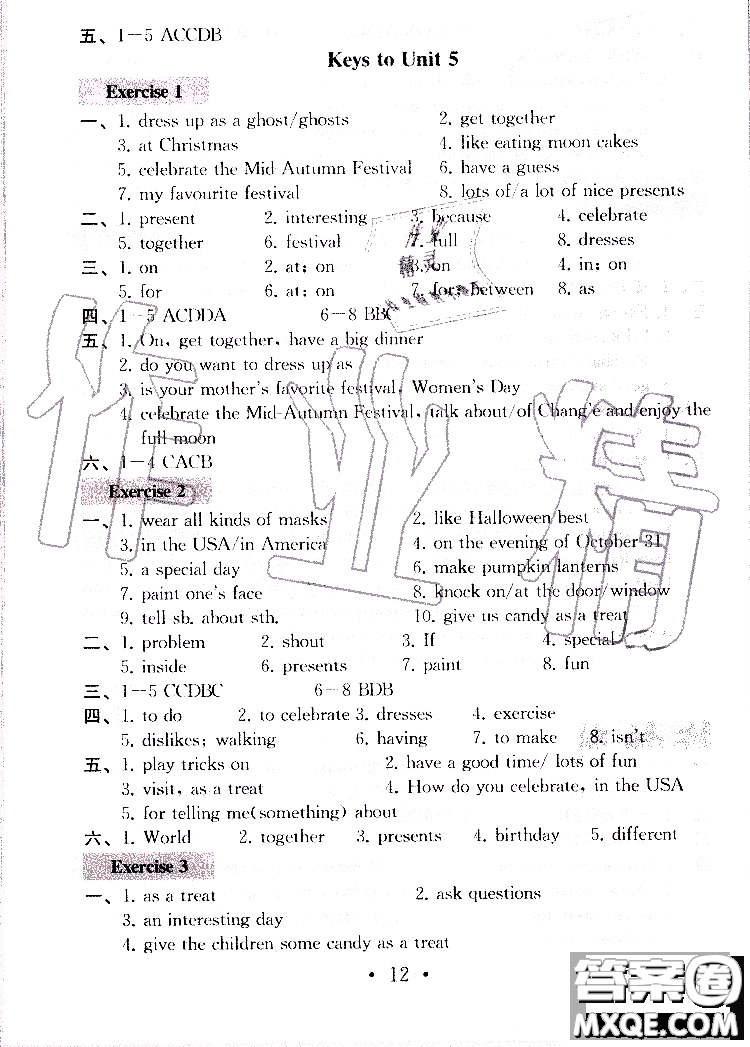 五、1－5 ACCDB
Keys to Unit 5
Exercise 1
一、1. dress up as a ghost/ghosts 2. get together
3. at Christmas 4. like eating moon cakes
5. celebrate the Mid-Autumn Festival 6. have a guess
7. my favourite festival 8. lots of/a lot of nice presents
二、1. present 2. interesting 3. because 4. celebrate
5. together 6. festival 7. full 8. dresses
三、1. on 2. at; on 3. on 4. in; on
5. for 6. at; on 7. for; between 8. as
四、1－5 ACDDA 6－8 BBC
五、1. On, get together, have a big dinner
2. do you want to dress up as
3. is your mother's favorite festival, Women's Day
4. celebrate the Mid-Autumn Festival, talk about/of Chang'e and enjoy the
full moon
六、1－4 CACB
Exercise 2
一、1. wear all kinds of masks 2. like Halloween best
3. in the USA/in America 4. on the evening of October 31
5. a special day 6. make pumpkin lanterns
7. paint one's face 8. knock on/at the door/window
9. tell sb. about sth. 10. give us candy as a treat
二、1. problem 2. shout 3. If 4. special
5. inside 6. presents 7. paint 8. fun
三、1－5 CCDBC 6－8 BDB
四、1. to do 2. to celebrate 3. dresses 4. exercise
5. dislikes; walking 6. having 7. to make 8. isn't
五、1. play tricks on 2. have a good time/ lots of fun
3. visit, as a treat 4. How do you celebrate, in the USA
5. for telling me(something) about
六、1. World 2. together 3. presents 4. birthday 5. different
Exercise 3
一、1. as a treat 2. ask questions
3. an interesting day
4. give the children some candy as a treat
• 12 •
作业精
答案圈
MXQE.COM